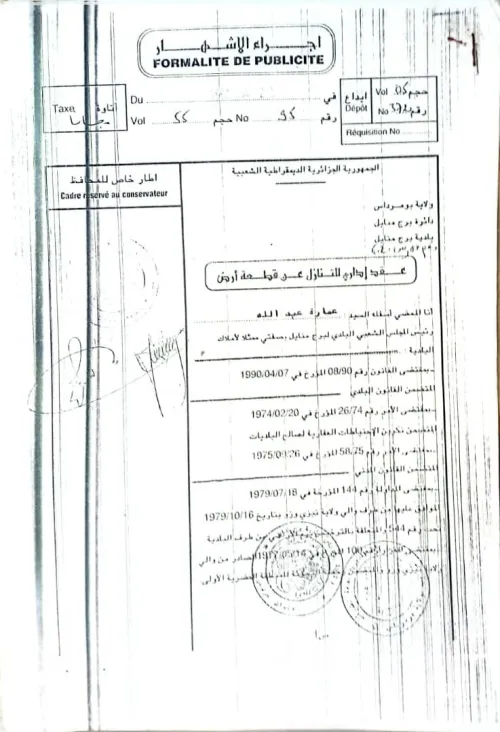 اجراء الاشهار
FORMALITE DE PUBLICITE
Taxe
اتاوة
Du
في
Vol 55 حجم No 95 رقم
ايداع
Dépôt
Vol حجم
No رقم
Réquisition No
اطار خاص للمحافظ
Cadre réservé au conservateur
الجمهورية الجزائرية الديمقراطية الشعبية
ولاية بومرداس
دائرة برج منايل
بلدية برج منايل
عقد إداري للتنازل عن قطعة أرض
أنا الممضي أسفله السيد: عمارة عبد الله
رئيس المجلس الشعبي البلدي لبرج منايل بصفتي ممثلا لأملاك
البلدية
بمقتضى القانون رقم 08/90 المؤرخ في 1990/04/07
المتضمن القانون البلدي
بمقتضى الأمر رقم 26/74 المؤرخ في 1974/02/20
المتضمن تكوين الإحتياطات العقارية لصالح البلديات
بمقتضى الأمر رقم 58/75 المؤرخ في 1975/09/26
المتضمن القانون المدني
بمقتضى المداولة رقم 144 المؤرخة في 1979/07/18
الموافق عليها من طرف والي ولاية تيزي وزو بتاريخ 1979/10/16
تحت رقم 544 من طرف البلدية
الصادر من والي
ولاية تيزي وزو للمنطقة الحضرية الأولى